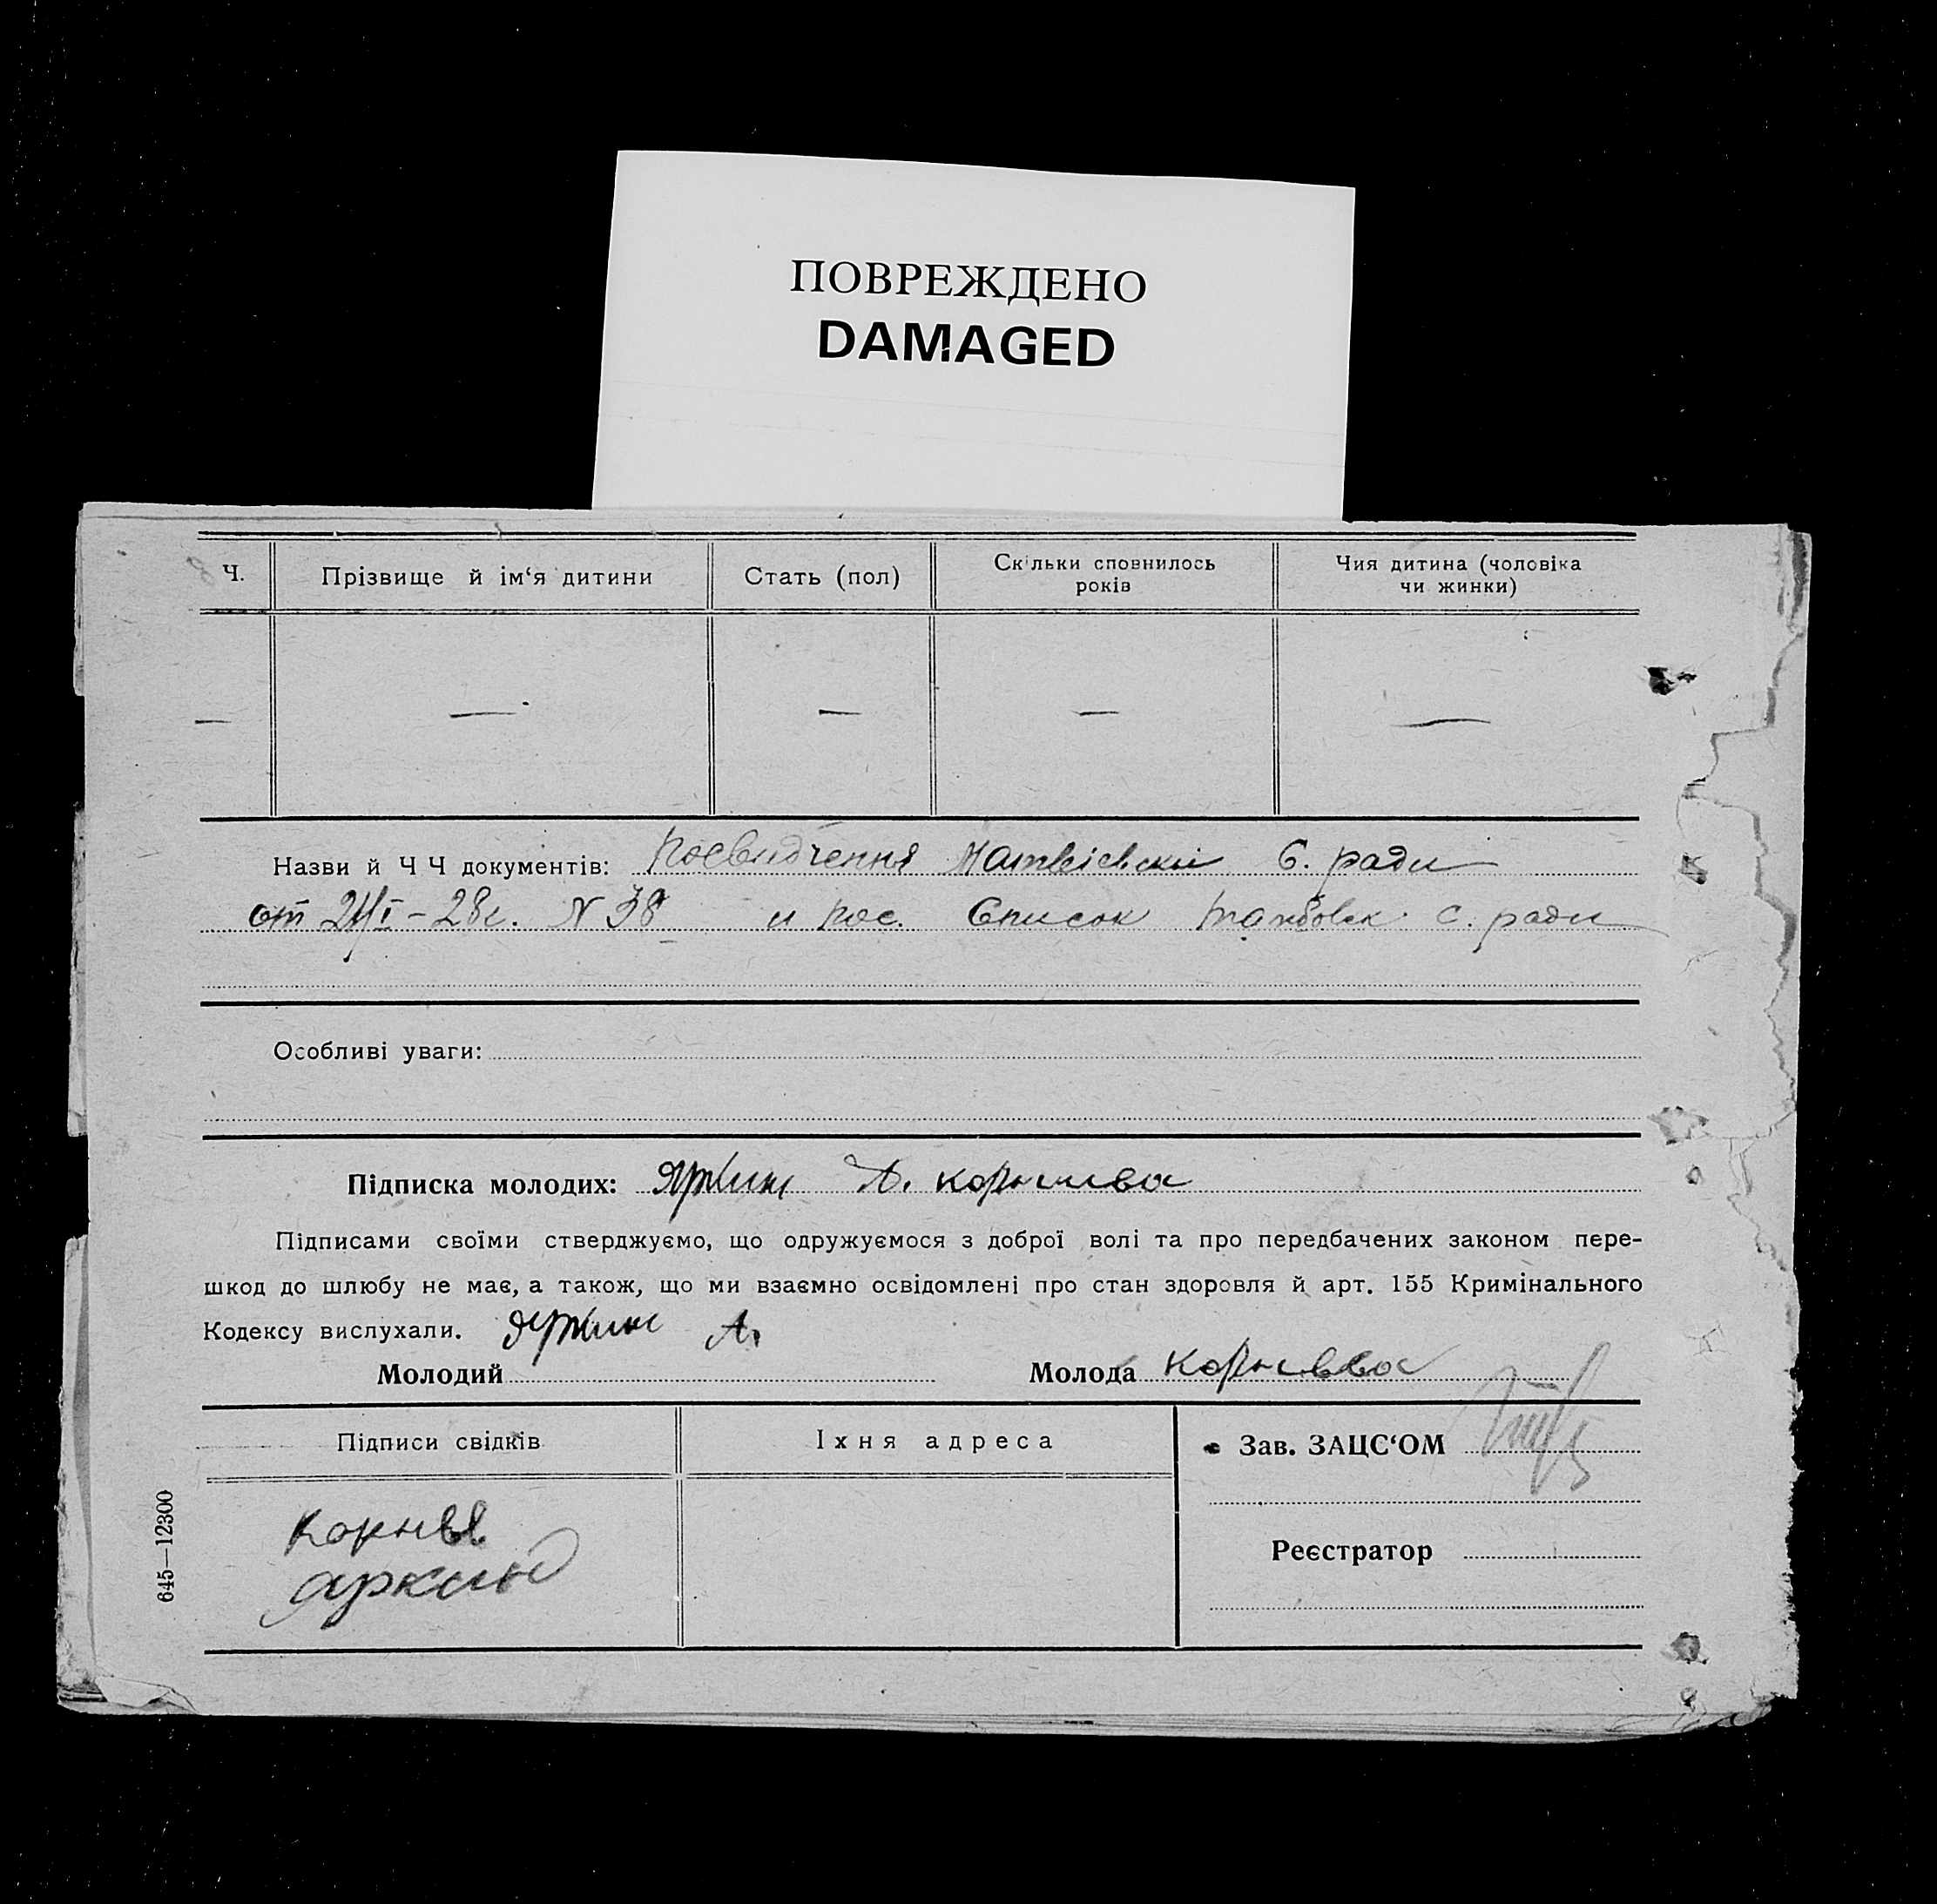 ПОВРЕЖДЕНО
DAMAGED
Ч.
Прізвище й ім‘я дитини
Стать (пол)
Скільки сповнилось
років
Чия дитина (чоловіка
чи жинки)
— — — — —
Назви й Ч Ч документів: Посвидчення Матвієвскій С. ради
от 24/I – 28г. N 38 и пос. Список с. ради
Особливі уваги:
Підписка молодих: Яркин А.
Підписами своїми стверджуємо, що одружуємося з доброї волі та про передбачених законом пере-
шкод до шлюбу не має, а також, що ми взаємно освідомлені про стан здоровля й арт. 155 Кримінального
Кодексу вислухали. Яркин А.
Молодий
Молода
Підписи свідків
Їхня адреса
Зав. ЗАЦС‘ОМ
Реєстратор
Яркин
645—12300